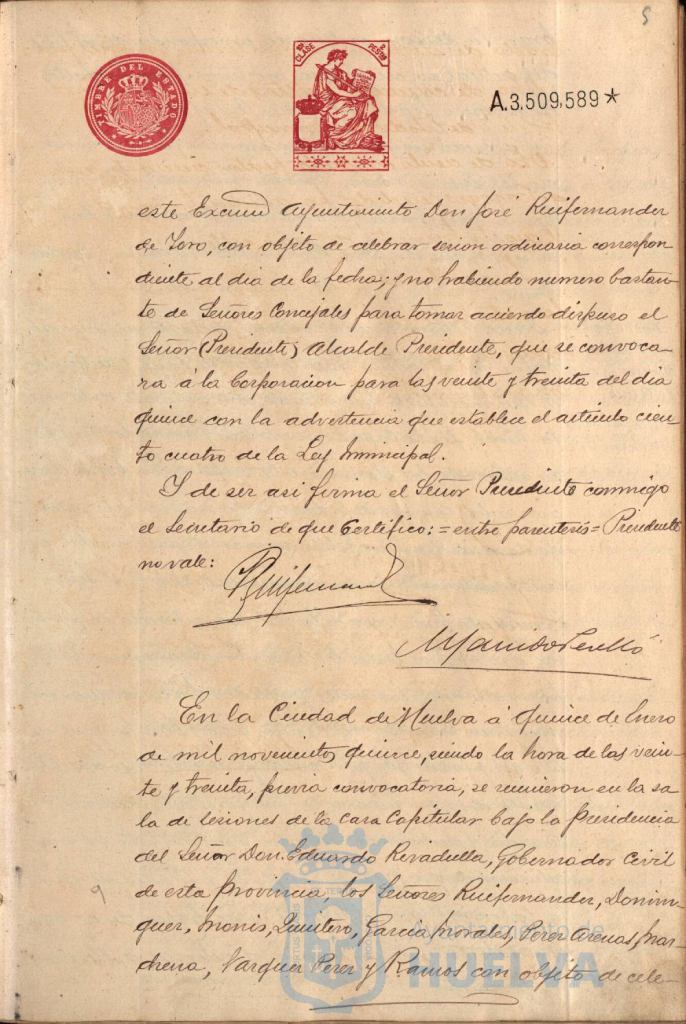 5
TIMBRE DEL ESTADO
10ª CLASE 2 PESTAS
A.3,509,589*
este Excmo Ayuntamiento Don José Ruifernandez
de Toro, con objeto de celebrar sesion ordinaria correspon
diente al dia de la fecha; y no habiendo numero bastan-
te de Señores Concejales para tomar acuerdo dispuso el
Señor (Presidente) Alcalde Presidente, que se convoca-
ra á la Corporacion para las veinte y treinta del dia
quince con la advertencia que establece el articulo cien-
to cuatro de la Ley Municipal.
Y de ser asi firma el Señor Presidente conmigo
el Secretario de que Certifico: = entre parentesis = Presidente
no vale:
Ruifernandez
En la Ciudad de Huelva á quince de Enero
de mil novecientos quince, siendo la hora de las vein-
te y treinta, previa convocatoria, se reunieron en la sa-
la de sesiones de la casa Capitular bajo la Presidencia
del Señor Don Eduardo Rivadulla, Gobernador Civil
de esta provincia, los Señores Ruifernandez, Domin-
guez, Monis, Quintero, García Morales, Perez Arenas, Mar-
chena, Vazquez Perez y Ramos con objeto de cele-
Ayuntamiento de
HUELVA